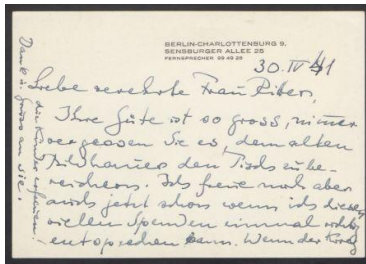 BERLIN-CHARLOTTENBURG 9,
SENSBURGER ALLEE 26
FERNSPRECHER 99 49 28
30. IV 41
Liebe verehrte Frau
Ihre Güte ist so gross, nimmer
vergessen Sie es, dem alten
Bildhauer den Tisch zu be-
reichern. Ich freue mich aber
auch jetzt schon wenn ich diesen
vielen Spenden einmal richtig
entsprechen kann. Wenn der Krieg
Dank u. Gruss an Sie.
die Kinder